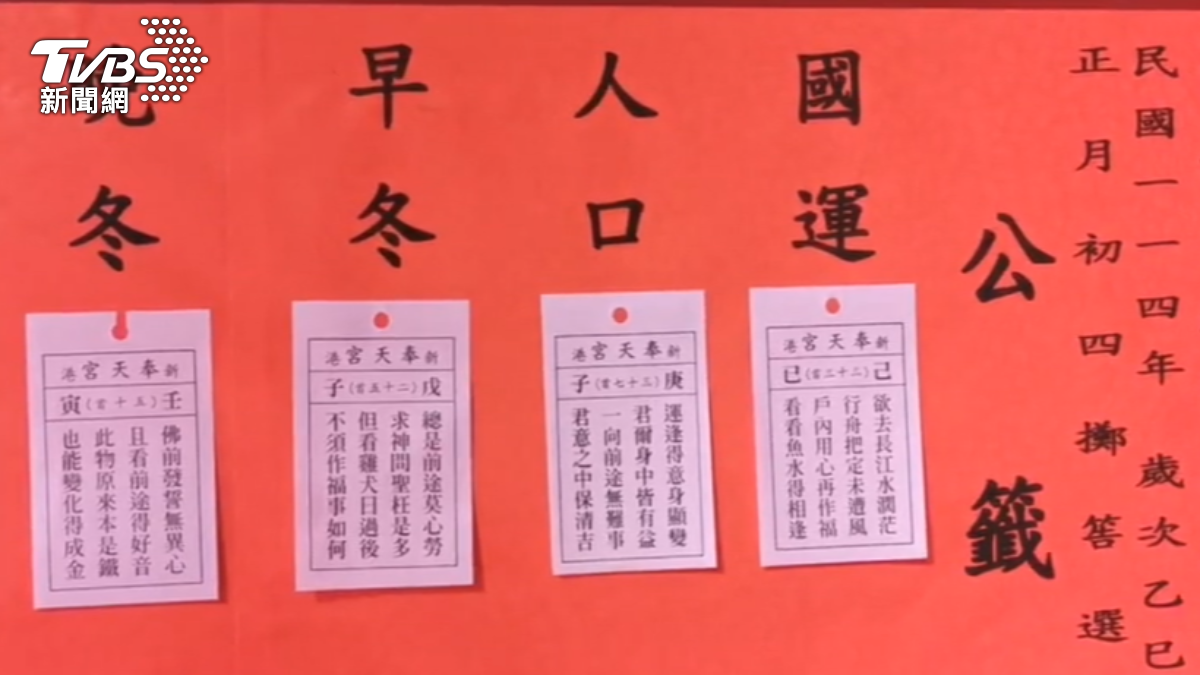 TVBS
新聞網
民國一一四年 歲次乙巳
正月初四擲筶選
公籤
國運
新港奉天宮
己(二十二首)巳
欲去長江水濶茫
行舟把定未遭風
戶內用心再作福
看看魚水得相逢
人口
新港奉天宮
庚(三十七首)子
運逢得意身顯變
君爾身中皆有益
一向前途無難事
君意之中保清吉
早冬
新港奉天宮
戊(二十五首)子
總是前途莫心勞
求神問聖枉是多
但看雞犬日過後
不須作福事如何
晚冬
新港奉天宮
壬(五十首)寅
佛前發誓無異心
且看前途得好音
此物原來本是鐵
也能變化得成金